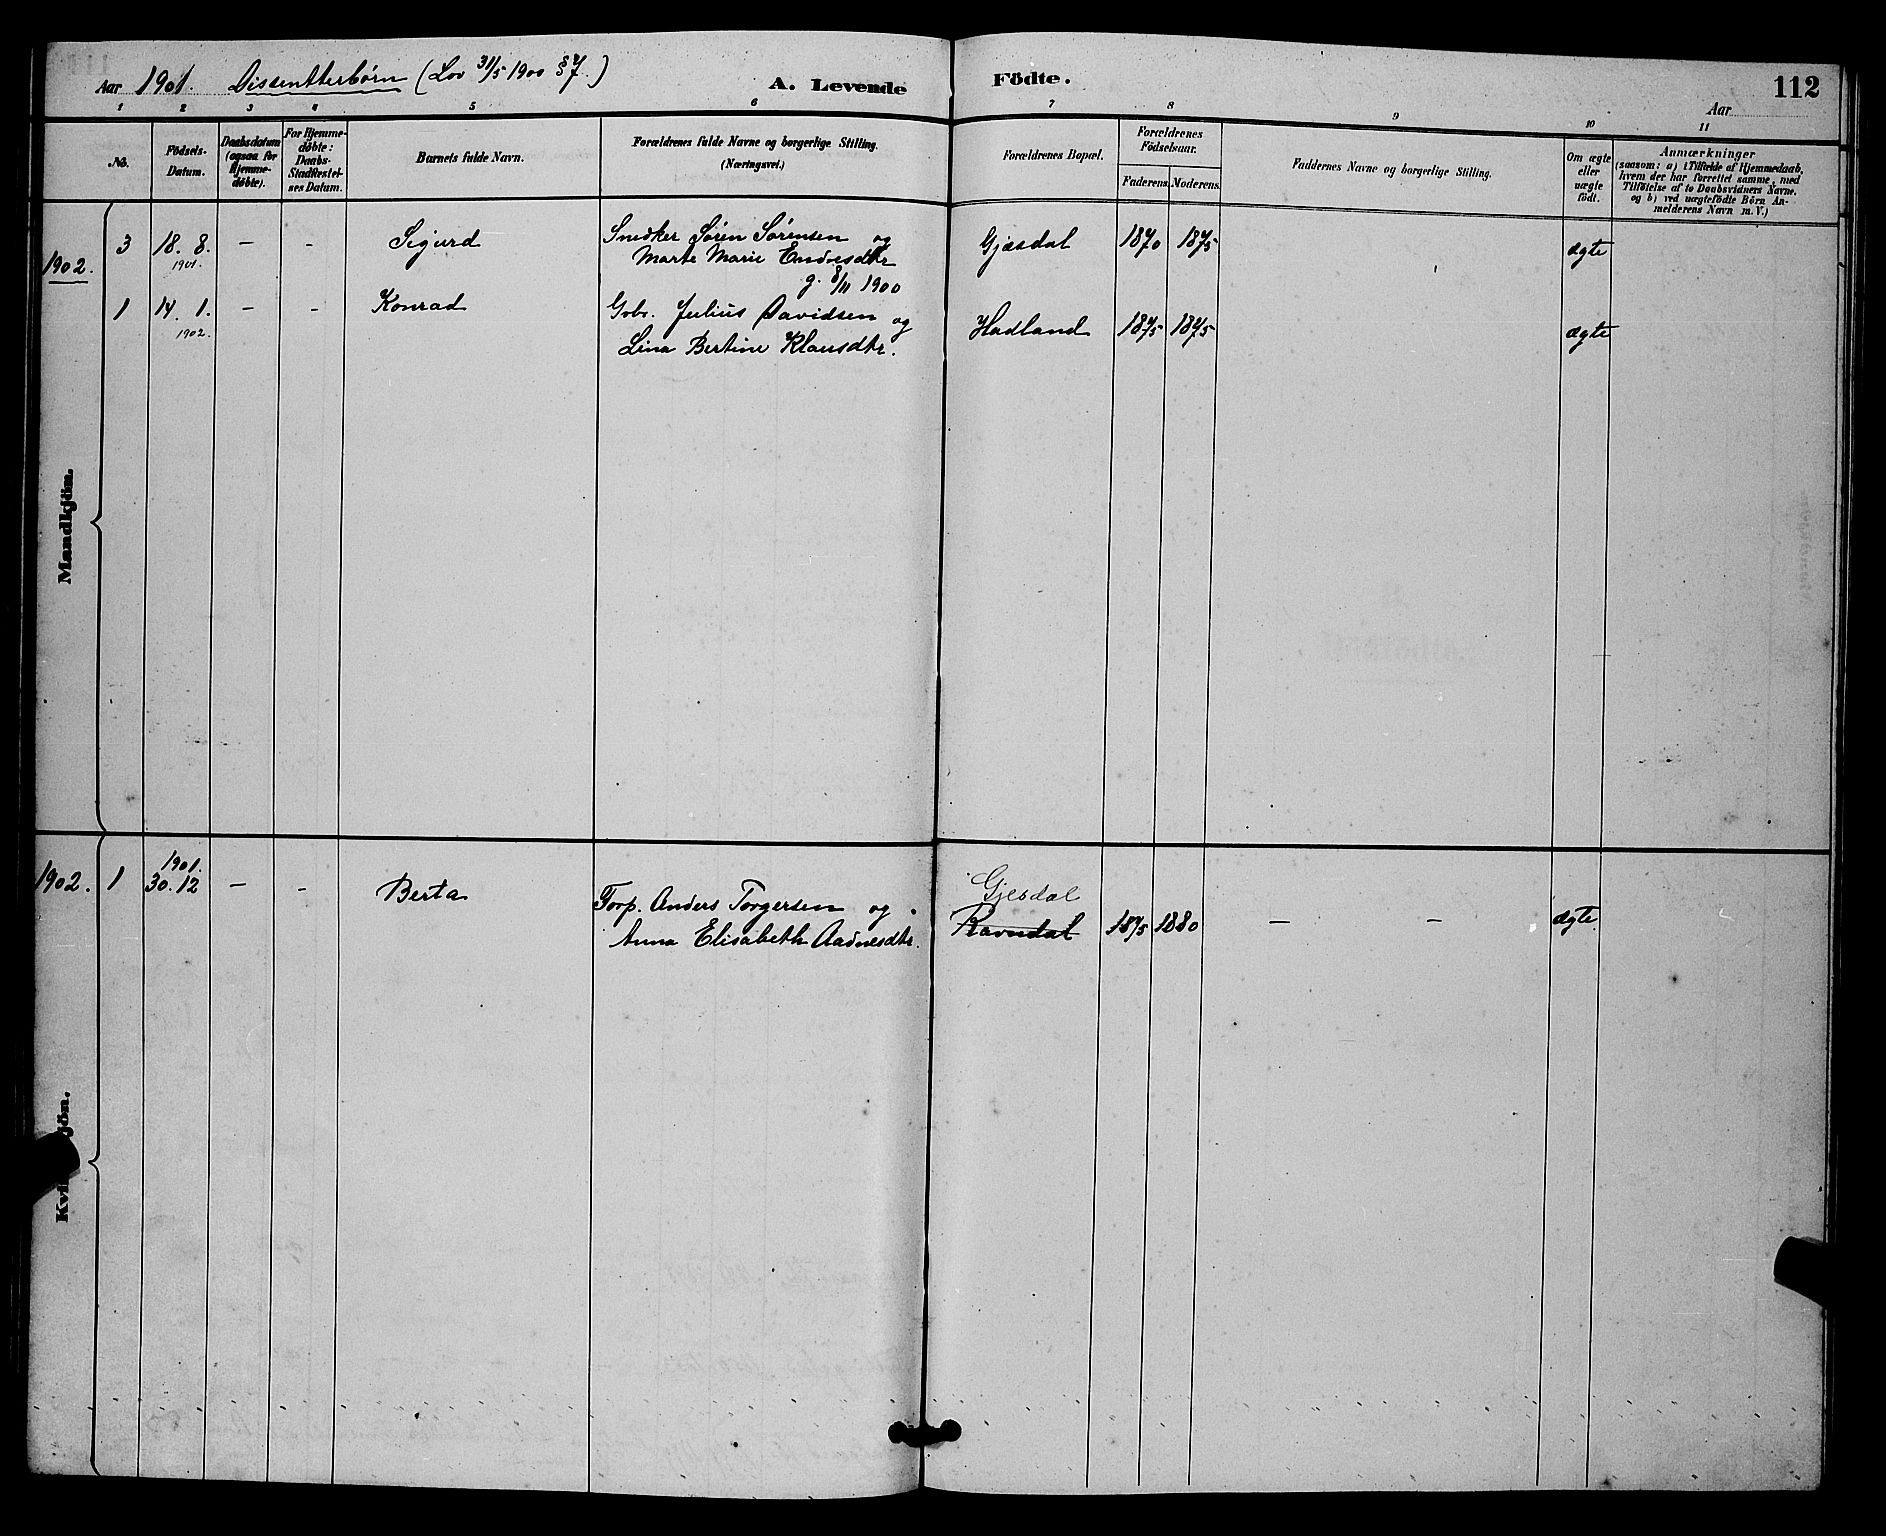 Aar 1901. Dissentterbørn (Lov 31/5 1900 §7.) A. Levende Födte. 112
Aar
1 2 3 4 5 6 7 8 9 10 11
No.
Födsels-Datum.
Daabsdatum (ogsaa for Hjemme-döbte).
For Hjemme-döbte: Daabs-Stadfæstel-ses Datum.
Barnets fulde Navn.
Forældrenes fulde Navne og borgerlige Stilling. (Næringsvei.)
Forældrenes Bopæl.
Forældrenes Födselsaar.
Faderens. Moderens.
Faddernes Navne og borgerlige Stilling.
Om ægte eller uægte födt.
Anmærkninger
(saasom: a) i Tilfælde af Hjemmedaab,
hvem der har forrettet samme, med
Tilföielse af to Daabsvidners Navne,
og b) ved uægtefödte Börn An-
melderens Navn m. V.)
3 18. 8. – - Sigurd Snedker Søren Sørensen og Gjæsdal 1870 1875 ægte
1901. Marte Marie Endresdtr
1902.
g. 8/11 1900
1 14. 1. – - Konrad Gbr. Julius Davidsen og Hadland 1875 1875 ægte
1902. Lina Bertine Klausdtr.
Mandkjön.
1901.
1902. 1 30. 12 – - Berta Forp. Anders Torgersen og Gjesdal
Anna Elisabeth Aadnesdtr. Ravndal 1875 1880 – – ægte.